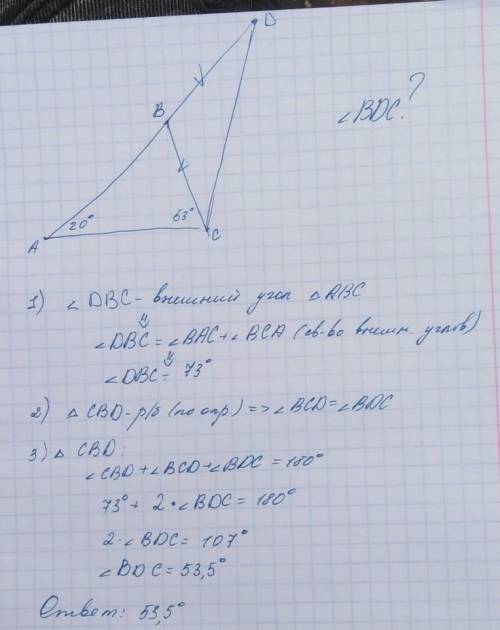 D
∠BDC?
B
20°
53°
A
C
1) ∠DBC - внешний угол △ABC
⇓
∠DBC = ∠BAC + ∠BCA (св-во внешн. углов)
⇓
∠DBC = 73°
2) △CBD - р/б (по опр) => ∠BCD = ∠BDC
3) △CBD:
∠CBD + ∠BCD + ∠BDC = 180°
73° + 2·∠BDC = 180°
2·∠BDC = 107°
∠BDC = 53,5°
Ответ: 53,5°